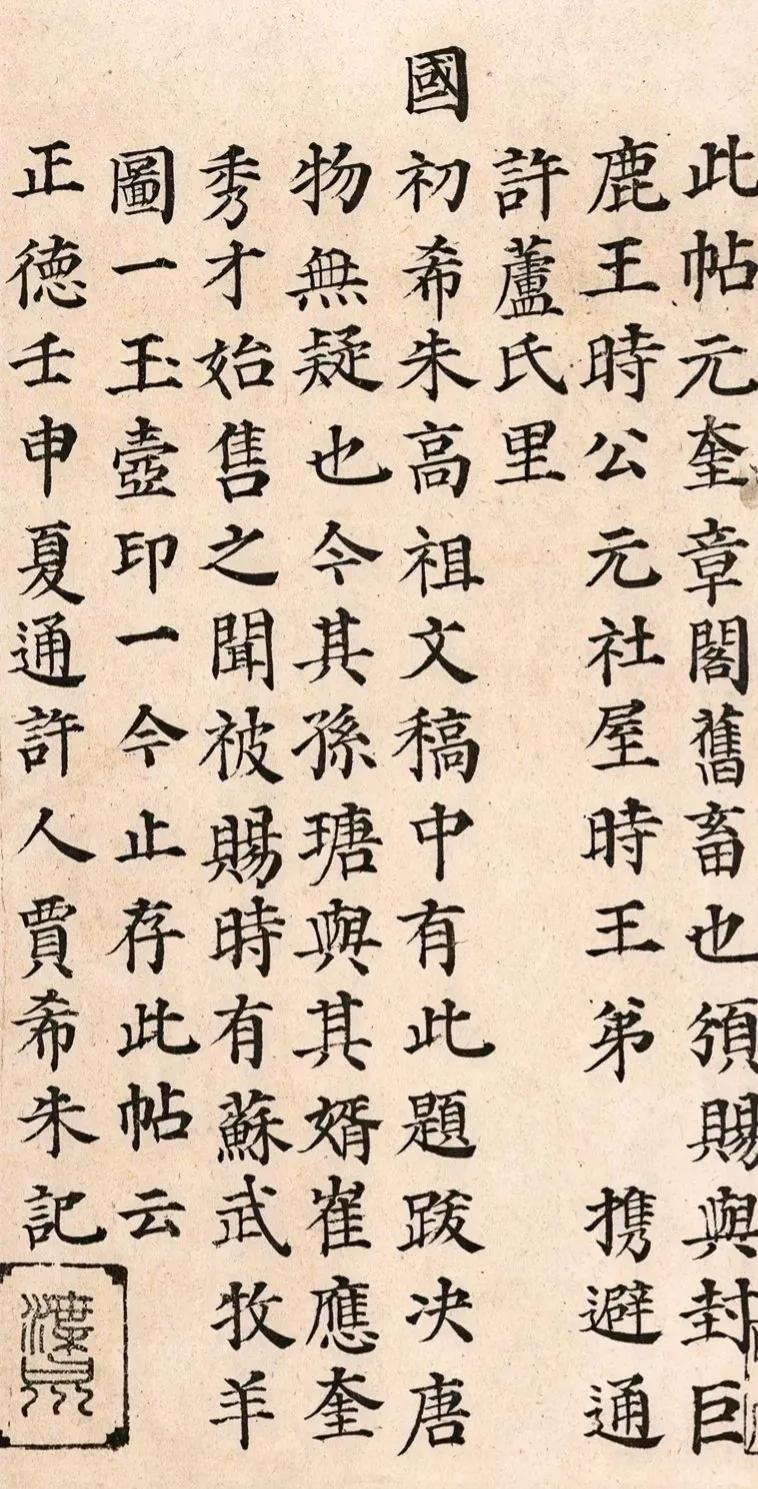 此帖元奎章閣舊畜也須賜與封巨
鹿王時公元社屋時王弟 携避通
許蘆氏里
國初希朱高祖文稿中有此題跋决唐
物無疑也今其孫瑭與其婿崔應奎
秀才始售之聞被賜時有蘇武牧羊
圖一玉壺印一今止存此帖云
正德壬申夏通許人賈希朱記